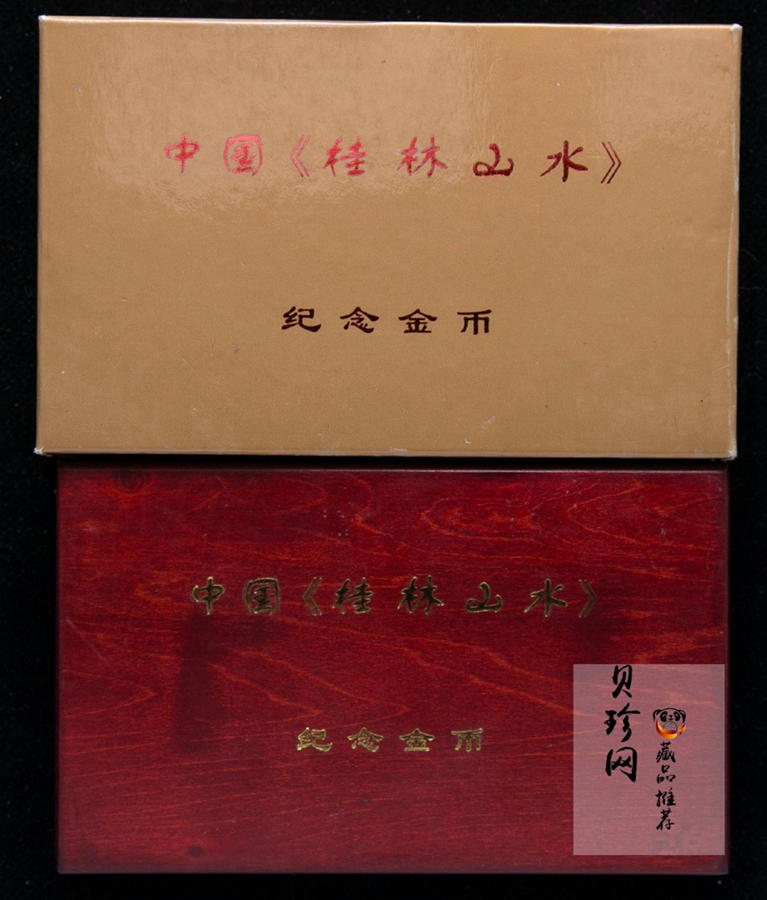 中国《桂林山水》
纪念金币
中国《桂林山水》
纪念金币
贝珍网
藏品推荐